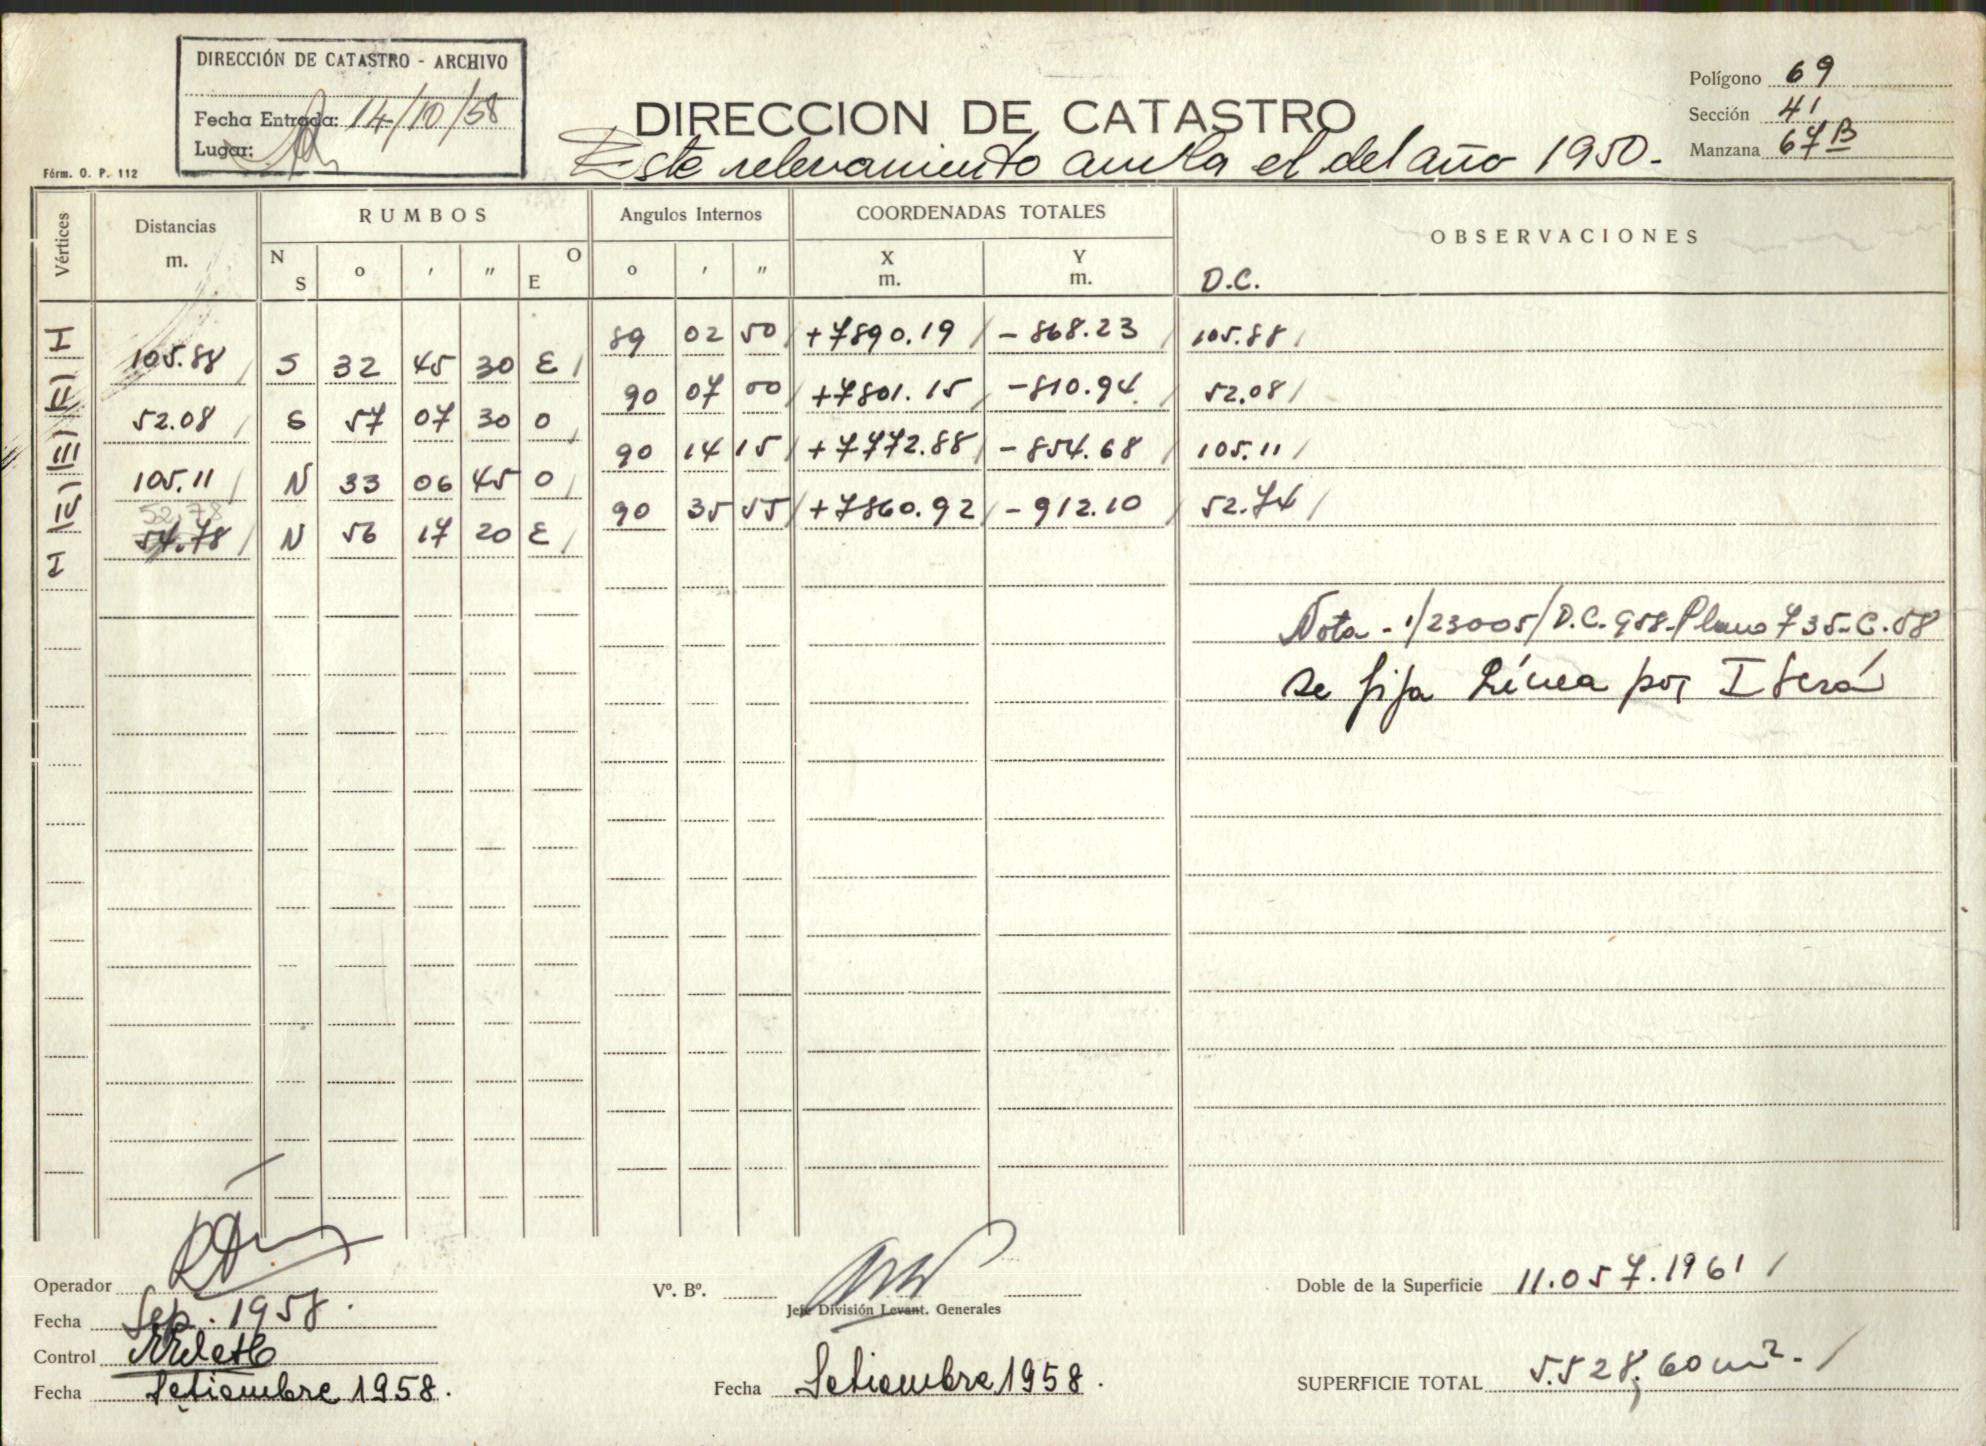 DIRECCIÓN DE CATASTRO - ARCHIVO
Fecha Entrada: 14/10/58
Lugar:
Férm. O. P. 112
DIRECCION DE CATASTRO
Este relevamiento anula el del año 1950.-
Polígono 69
Sección 41
Manzana 67 B
Vértices Distancias m. RUMBOS Angulos Internos COORDENADAS TOTALES OBSERVACIONES
N S o ' " O E o ' " X m. Y m. D.C.
I 89 02 50 +7890.19 -868.23 105.88
105.88 S 32 45 30 E
II 90 07 00 +7801.15 -810.94 52.08
52.08 S 57 07 30 O
III 90 14 15 +7772.88 -854.68 105.11
105.11 N 33 06 45 O
IV 90 35 55 +7860.92 -912.10 52.74
52.78
54.78 N 56 17 20 E
I
Nota - 1/23005/D.C. 958-Plano 735-C-58
se fija Línea por Iberá
Operador
Fecha Sep. 1958.
Control
Fecha Setiembre 1958.
Vº. Bº.
Jefe División Levant. Generales
Fecha Setiembre 1958.
Doble de la Superficie 11.057.1961
SUPERFICIE TOTAL 5.528,60 m².